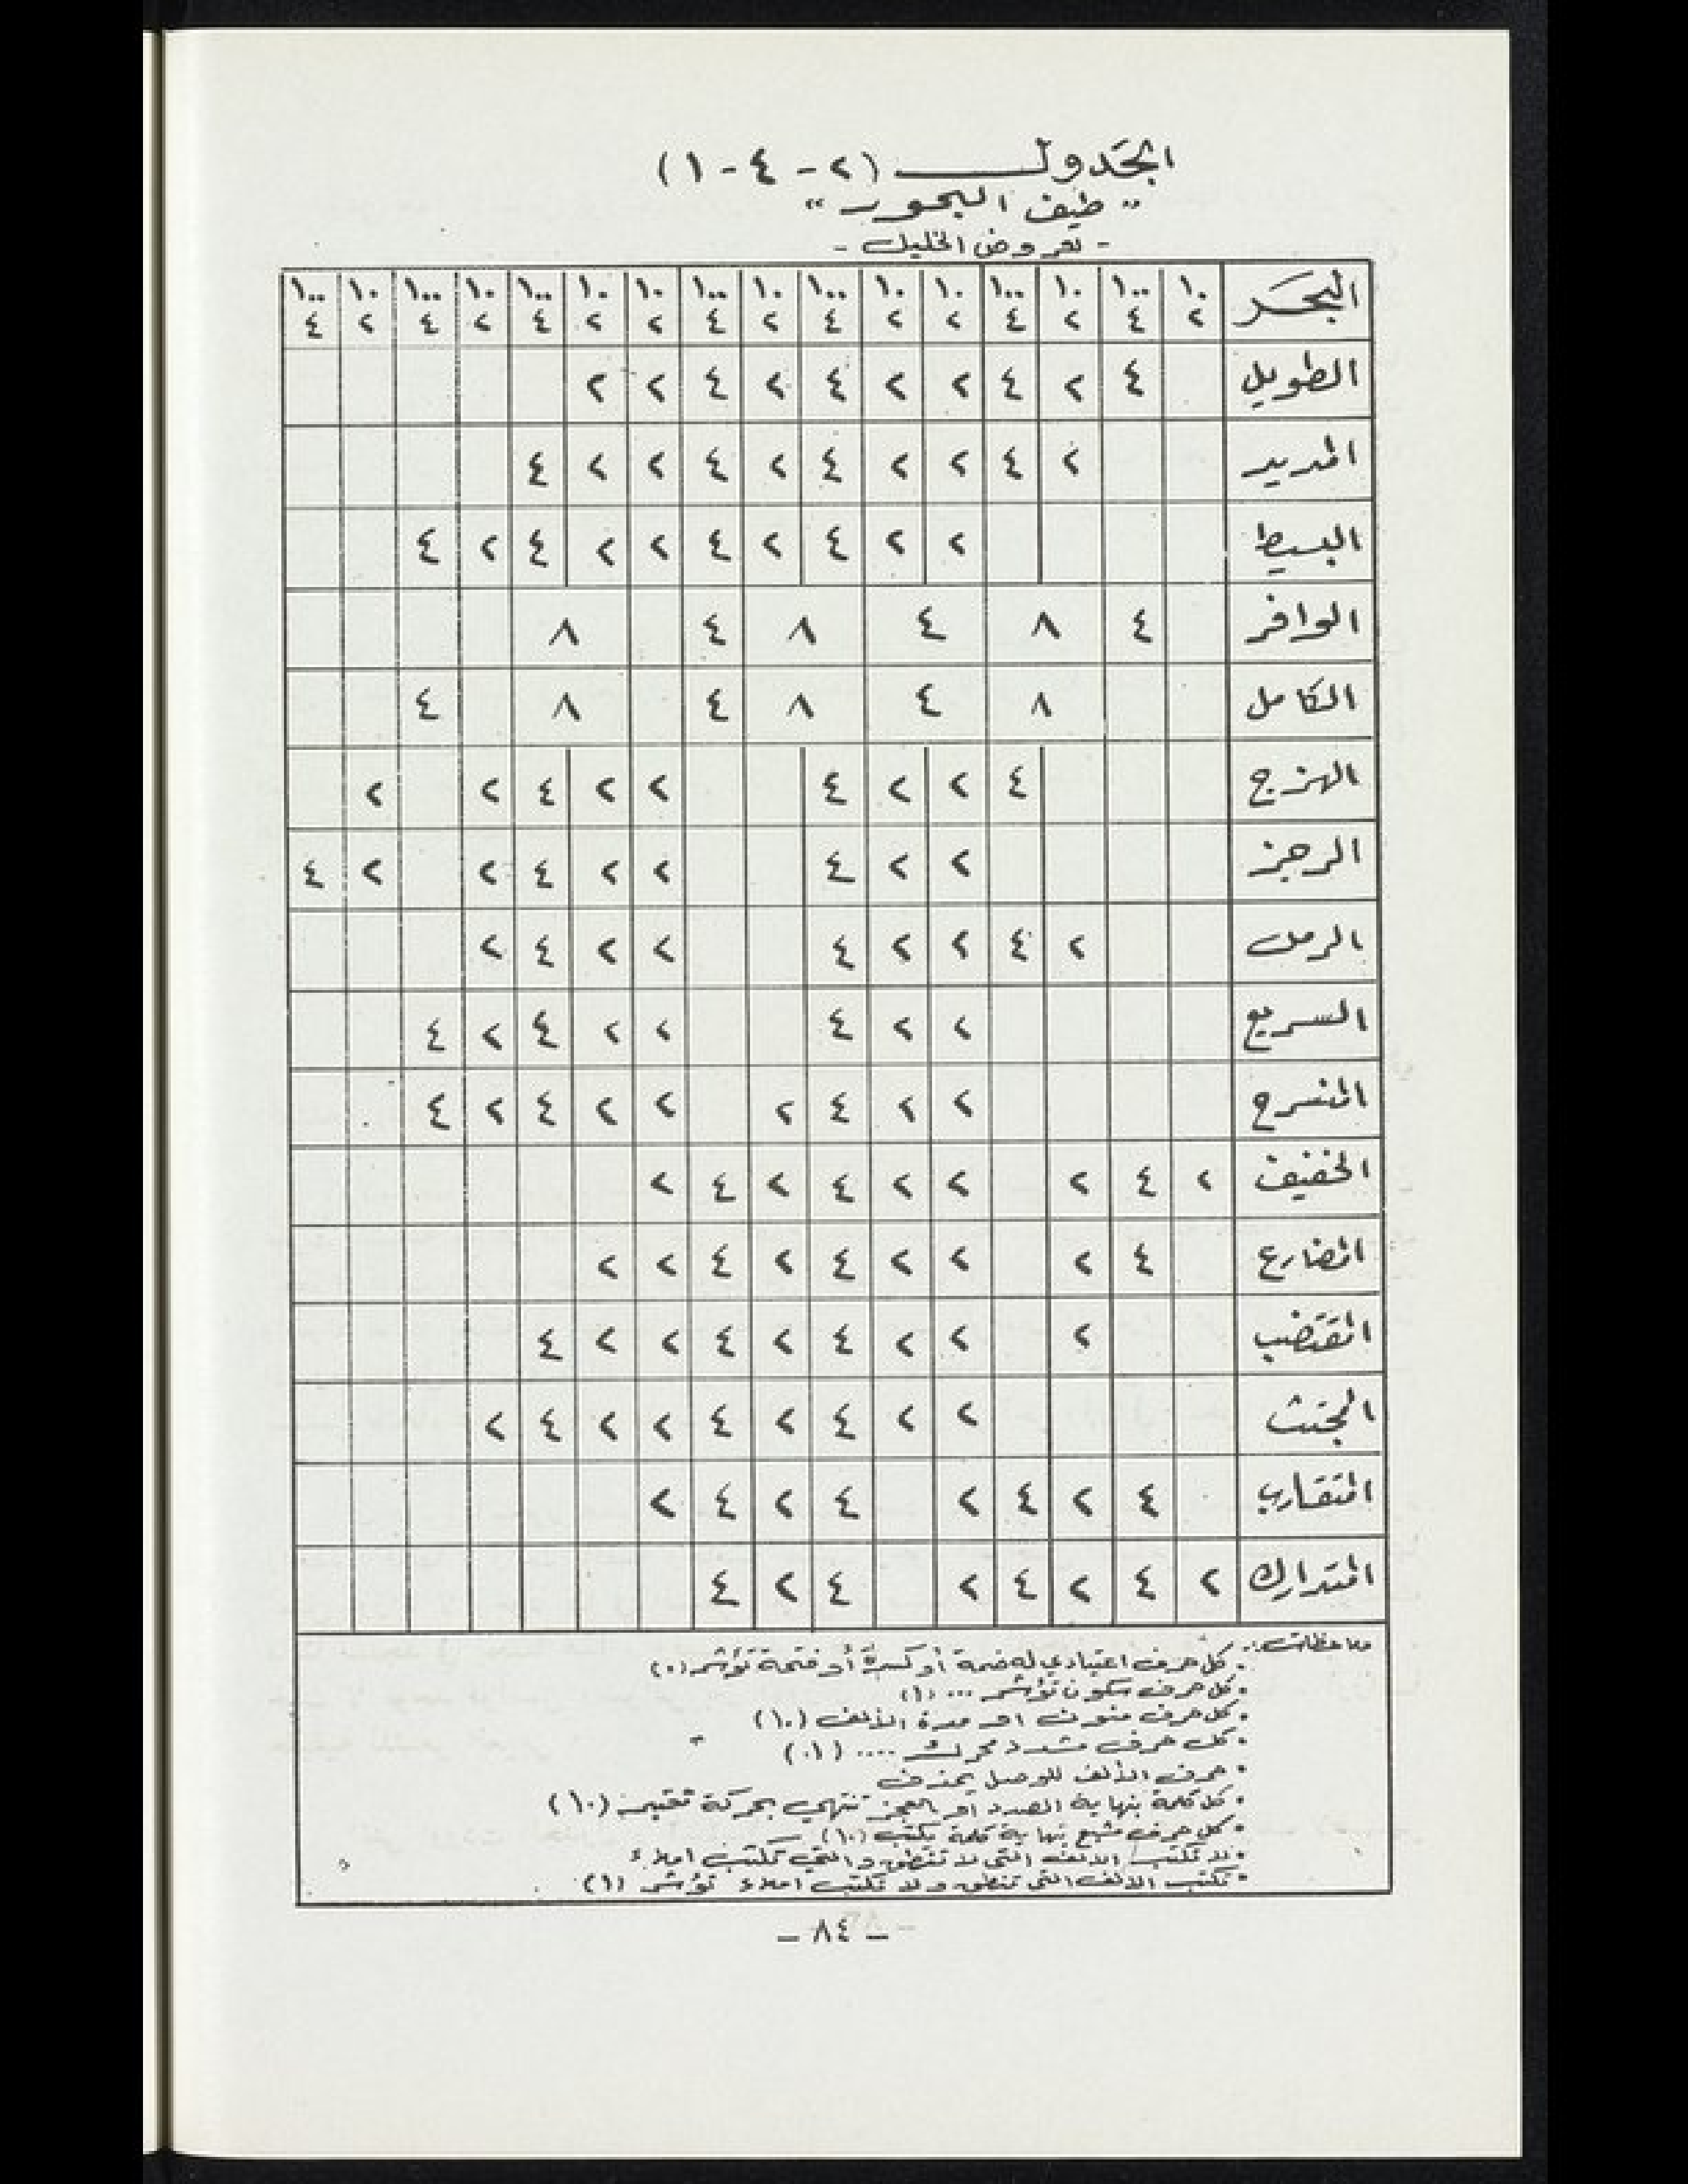 الجَدول (٢ - ٤ - ١)
" طيف البحور "
- لعروض الخليل -
البحَـر ١٠ ١٠٠ ١٠ ١٠٠ ١٠ ١٠ ١٠٠ ١٠ ١٠٠ ١٠ ١٠ ١٠٠ ١٠ ١٠٠ ١٠ ١٠٠
٢ ٤ ٢ ٤ ٢ ٢ ٤ ٢ ٤ ٢ ٢ ٤ ٢ ٤ ٢ ٤
الطويل ٤ ٢ ٤ ٢ ٢ ٤ ٢ ٤ ٢ ٢
المديد ٢ ٤ ٢ ٢ ٤ ٢ ٤ ٢ ٢ ٤
البسيط ٢ ٢ ٤ ٢ ٤ ٢ ٢ ٤ ٢ ٤
الوافر ٤ ٨ ٤ ٨ ٤ ٨
الكامل ٨ ٤ ٨ ٤ ٨ ٤
الهزج ٤ ٢ ٢ ٤ ٢ ٢ ٤ ٢ ٢
الرجز ٢ ٢ ٤ ٢ ٢ ٤ ٢ ٢ ٤
الرمل ٢ ٤ ٢ ٢ ٤ ٢ ٢ ٤ ٢
السريع ٢ ٢ ٤ ٢ ٢ ٤ ٢ ٤
المنسرح ٢ ٢ ٤ ٢ ٢ ٢ ٤ ٢ ٤
الخفيف ٢ ٤ ٢ ٢ ٢ ٤ ٢ ٤ ٢
المضارع ٤ ٢ ٢ ٢ ٤ ٢ ٤ ٢ ٢
المقتضب ٢ ٢ ٢ ٤ ٢ ٤ ٢ ٢ ٤
المجتث ٢ ٢ ٤ ٢ ٤ ٢ ٢ ٤ ٢
المتقارب ٤ ٢ ٤ ٢ ٤ ٢ ٤ ٢
المتدارك ٢ ٤ ٢ ٤ ٢ ٤ ٢ ٤
ملاحظات:
• كل حرف اعتيادي له ضمة أو كسرة أو فتحة تؤشر (٠)
• كل حرف سكون تؤشر ... (١)
• كل حرف منون او مدة الألف (١٠)
• كل حرف مشدد محرك .... (٠١)
• حرف الألف للوصل يحذف
• كل كلمة بنهاية الصدر أو العجز تنتهي بحركة تعتبر (١٠)
• كل حرف مشبع بنهاية كلمة يكتب (١٠)
• لا تكتب الالف التي لا تنطق والتي تكتب املاءً
• تكتب الالف التي تنطق ولا تكتب املاءً تؤشر (١)
- ٨٤ -